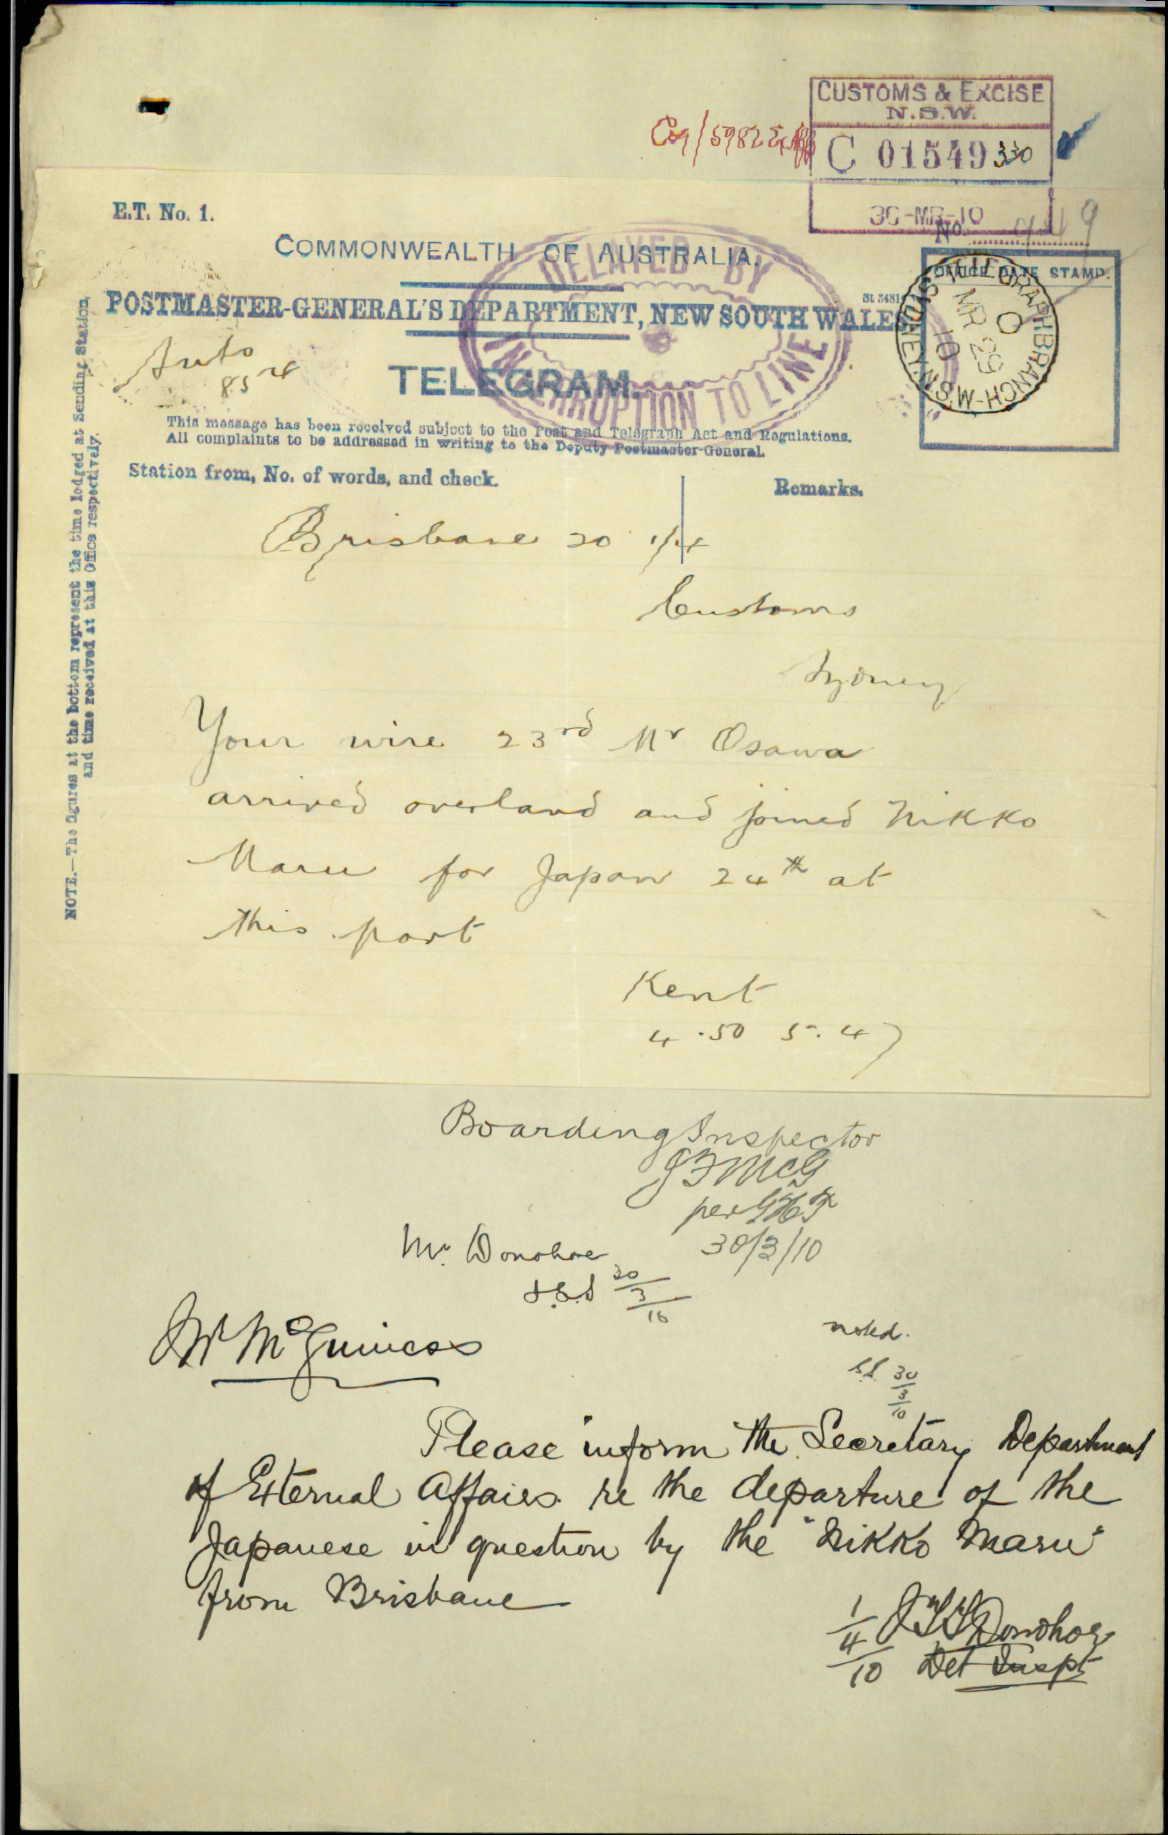 CUSTOMS & EXCISE
N.S.W.
C 01549 330
30-MR-10
E.T. No. 1.
No.
COMMONWEALTH OF AUSTRALIA.
OFFICE DATE STAMP.
POSTMASTER-GENERAL'S DEPARTMENT, NEW SOUTH WALES
TELEGRAPH BRANCH
MR 29
10
SYDNEY N.S.W.
DELAYED BY
INTERRUPTION TO LINE
TELEGRAM.
This message has been received subject to the Post and Telegraph Act and Regulations.
All complaints to be addressed in writing to the Deputy Postmaster-General.
Station from, No. of words, and check.
Remarks.
NOTE.—The figures at the bottom represent the time lodged at Sending Station,
and time received at this Office respectively.
Brisbane 20
Customs
Sydney
Your wire 23rd Mr Osawa
arrived overland and joined Nikko
Maru for Japan 24th at
this port
Kent
4.50 5.47
Boarding Inspector
JFMcG
per
30/3/10
Mr. Donohoe
30/3/10
Mr McGuiness
noted.
30/3/10
Please inform the Secretary Department
of External Affairs re the departure of the
Japanese in question by the "Nikko Maru"
from Brisbane
1/4/10 Donohoe
Det Inspr